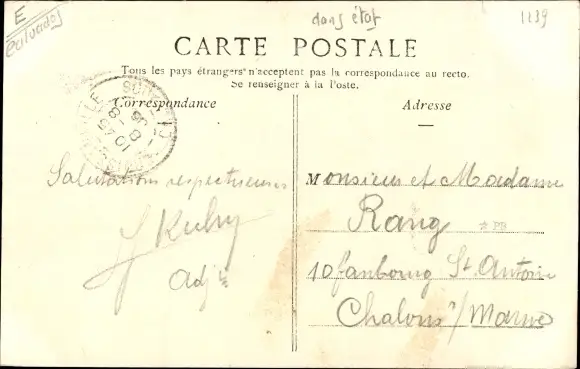 E
Calvados
dans état
1239
CARTE POSTALE
Tous les pays étrangers n'acceptent pas la correspondance au recto.
Se renseigner à la Poste.
Correspondance
Adresse
Salutations respectueuses
Kuhry
Adjt
Monsieur et Madame
Rang
10 faubourg St Antoine
Chalons s/ Marne